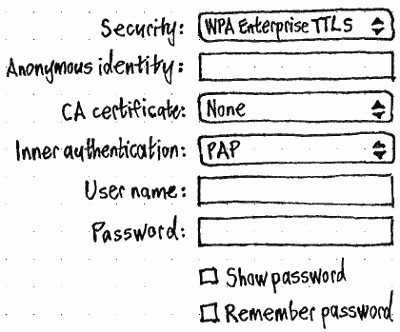 Security: WPA Enterprise TTLS
Anonymous identity:
CA certificate: None
Inner authentication: PAP
User name:
Password:
Show password
Remember password